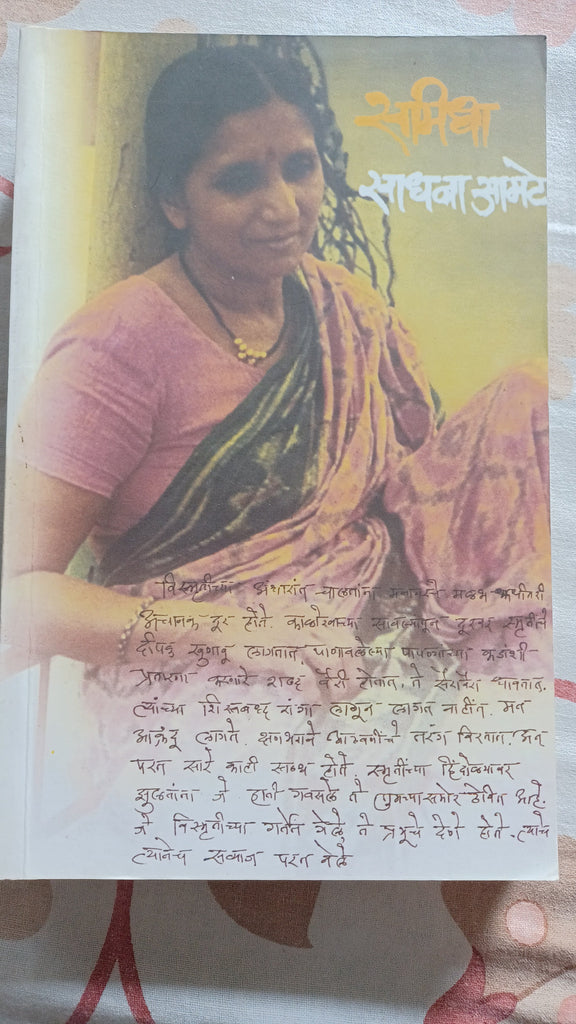 समिधा
साधना आमटे
विस्मृतीच्या अंधारांत चालतांना मनावरचे मळभ कधीतरी
अचानक दूर होते. काळोखाच्या सावल्यांतून दूरवर स्मृतींचे
दीपक खुणावू लागतात. पाणावलेल्या पापण्यांच्या कडांशी
प्रतारणा करणारे शब्द वैरी होतात, ते सैरावैरा धावतात.
त्यांच्या शिस्तबध्द रांगा लागून लागत नाहीत. मन
आक्रंदू लागते. क्षणभराने आठवणींचे तरंग विरतात. अन्
परत सारे काही स्तब्ध होते. स्मृतींच्या हिंदोळ्यावर
झुलतांना जे हाती गवसले ते तुमच्यासमोर ठेवित आहे.
जे विस्मृतीच्या गर्तेत गेले ते प्रभूचे देणे होते. त्याचे
त्यानेच परत नेले